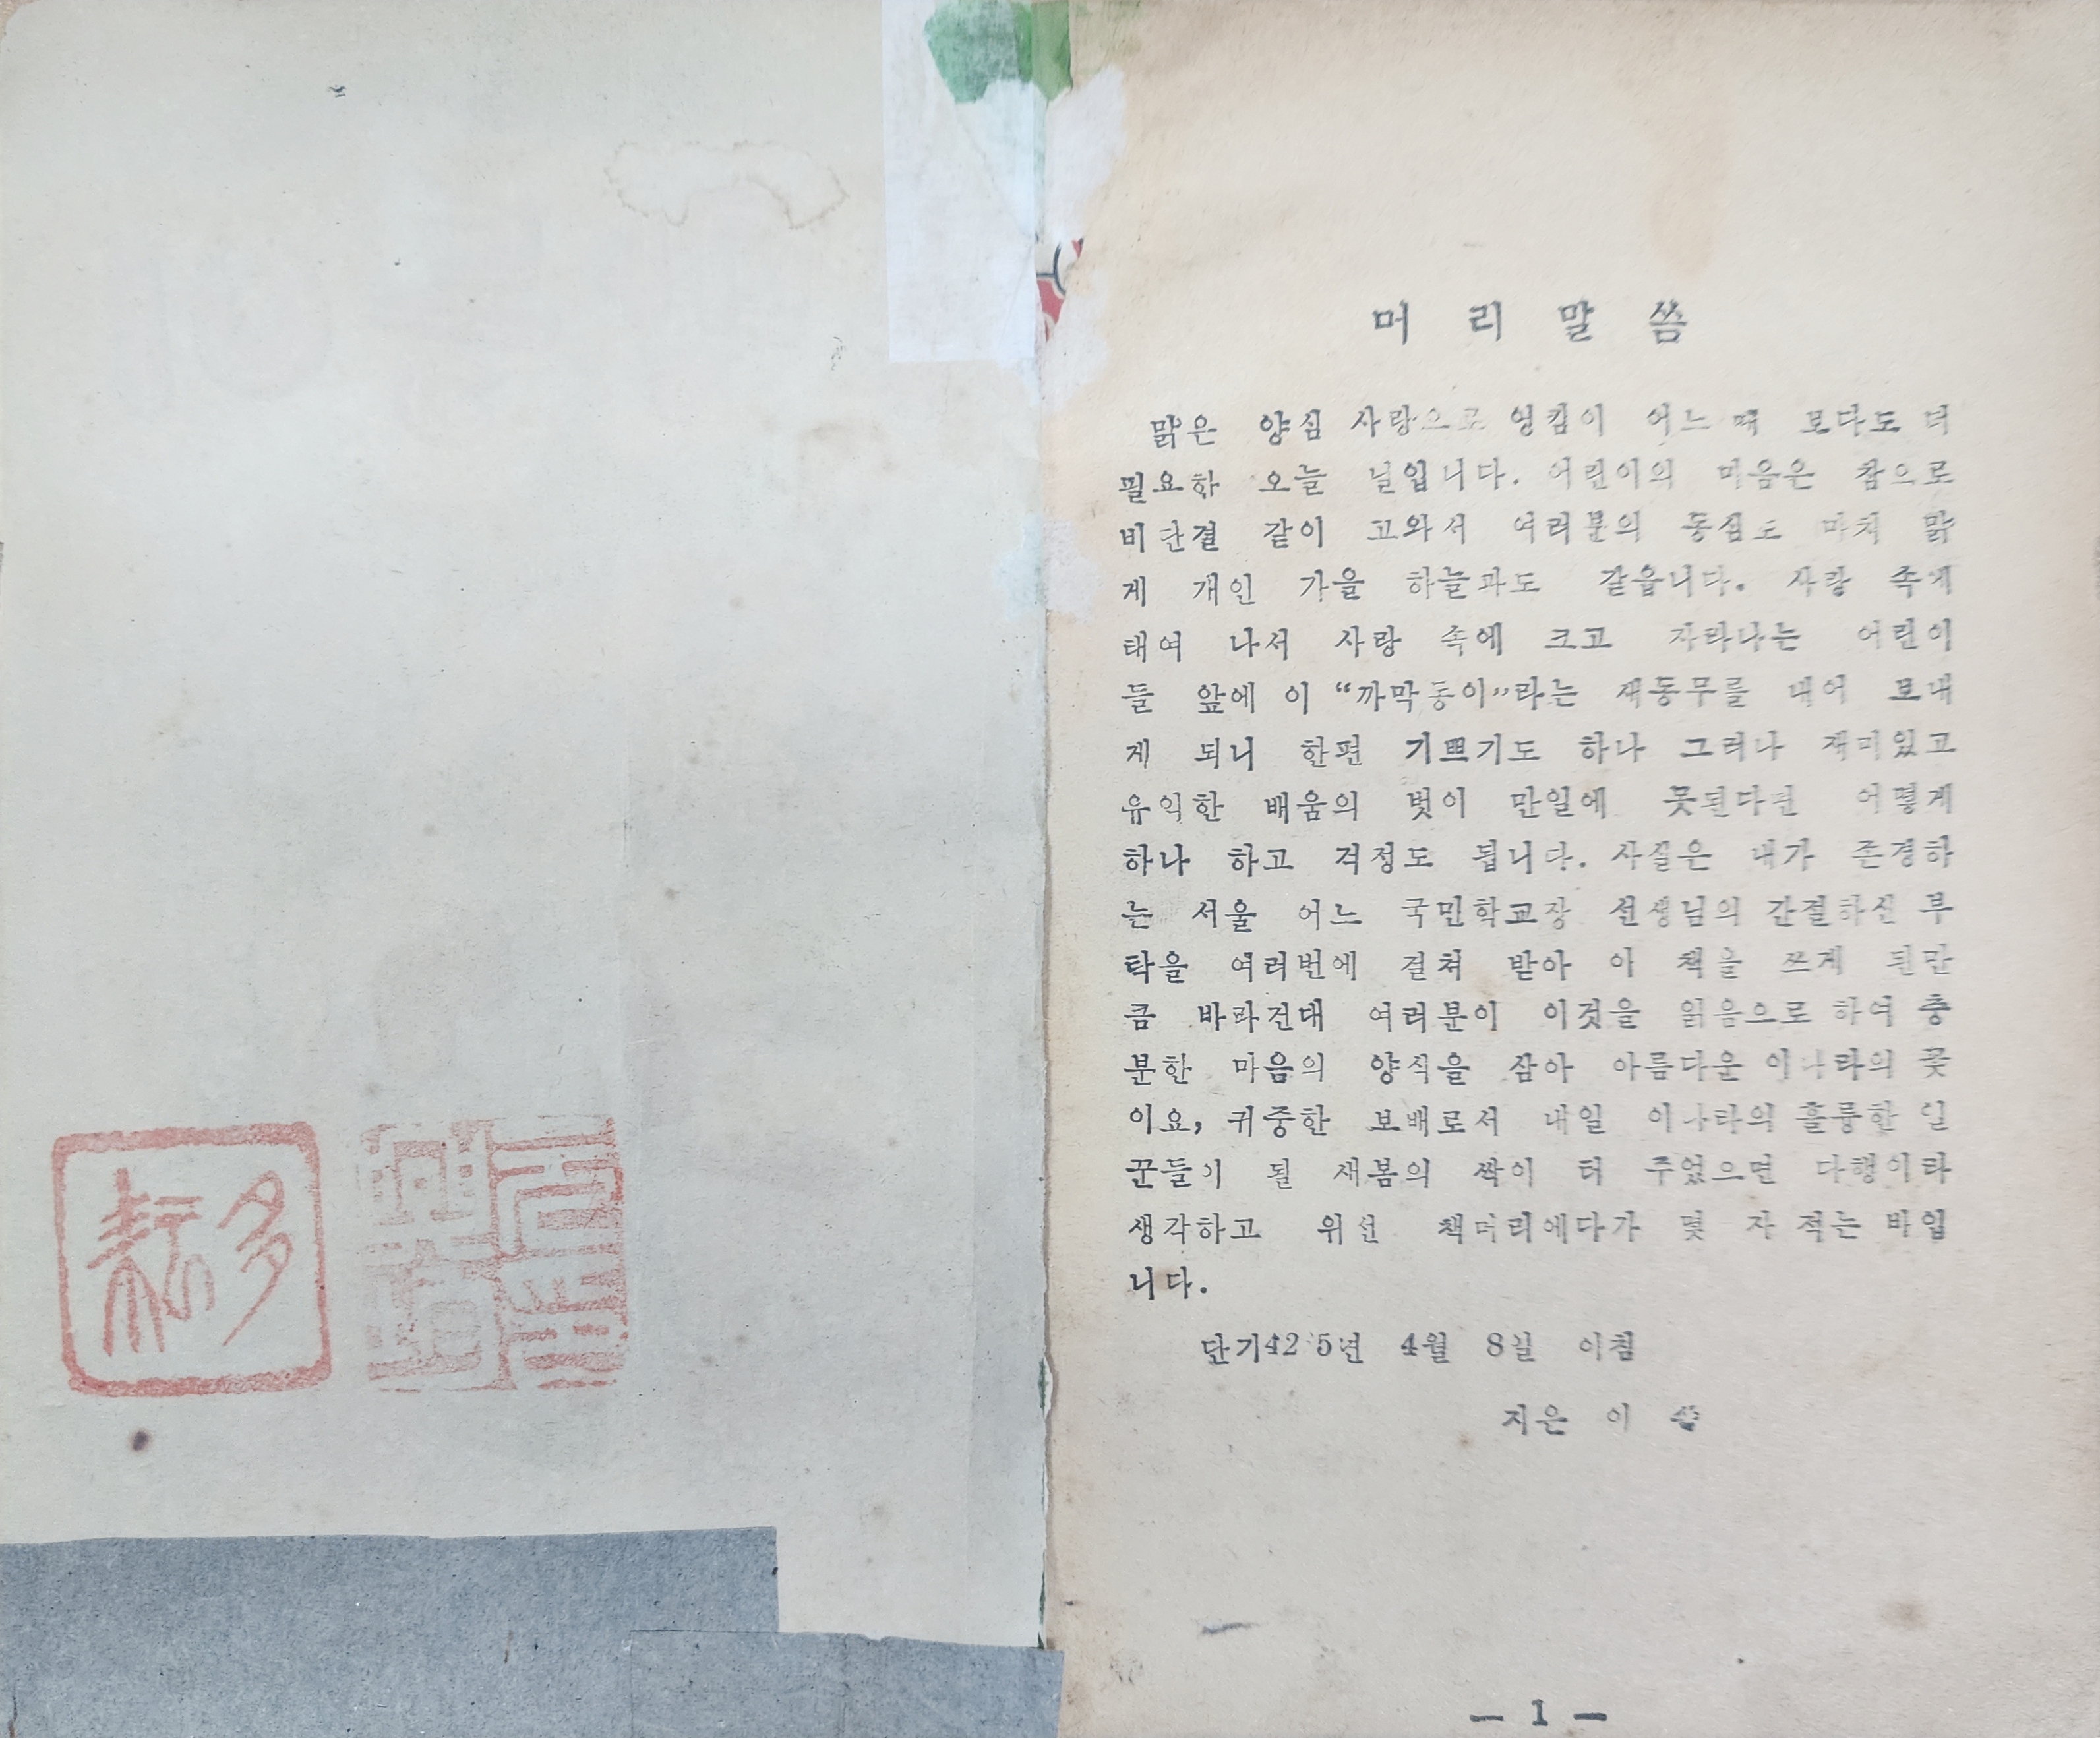 머리말씀
맑은 양심 사랑으로 엉킴이 어느 때 보다도 더
필요한 오늘 날입니다. 어린이의 마음은 참으로
비단결 같이 고와서 여러분의 동심도 마치 맑
게 개인 가을 하늘과도 같읍니다. 사랑 속에
태여 나서 사랑 속에 크고 자라나는 어린이
들 앞에 이 “까막동이”라는 새동무를 내어 보내
게 되니 한편 기쁘기도 하나 그러나 재미있고
유익한 배움의 벗이 만일에 못된다면 어떻게
하나 하고 걱정도 됩니다. 사실은 내가 존경하
는 서울 어느 국민학교장 선생님의 간절하신 부
탁을 여러번에 걸쳐 받아 이 책을 쓰게 된만
큼 바라건대 여러분이 이것을 읽음으로 하여 충
분한 마음의 양식을 삼아 아름다운 이나라의 꽃
이요, 귀중한 보배로서 내일 이나라의 훌륭한 일
꾼들이 될 새봄의 싹이 터 주었으면 다행이라
생각하고 위선 책머리에다가 몇 자 적는 바입
니다.
4월 8일 아침
지은 이
— 1 —